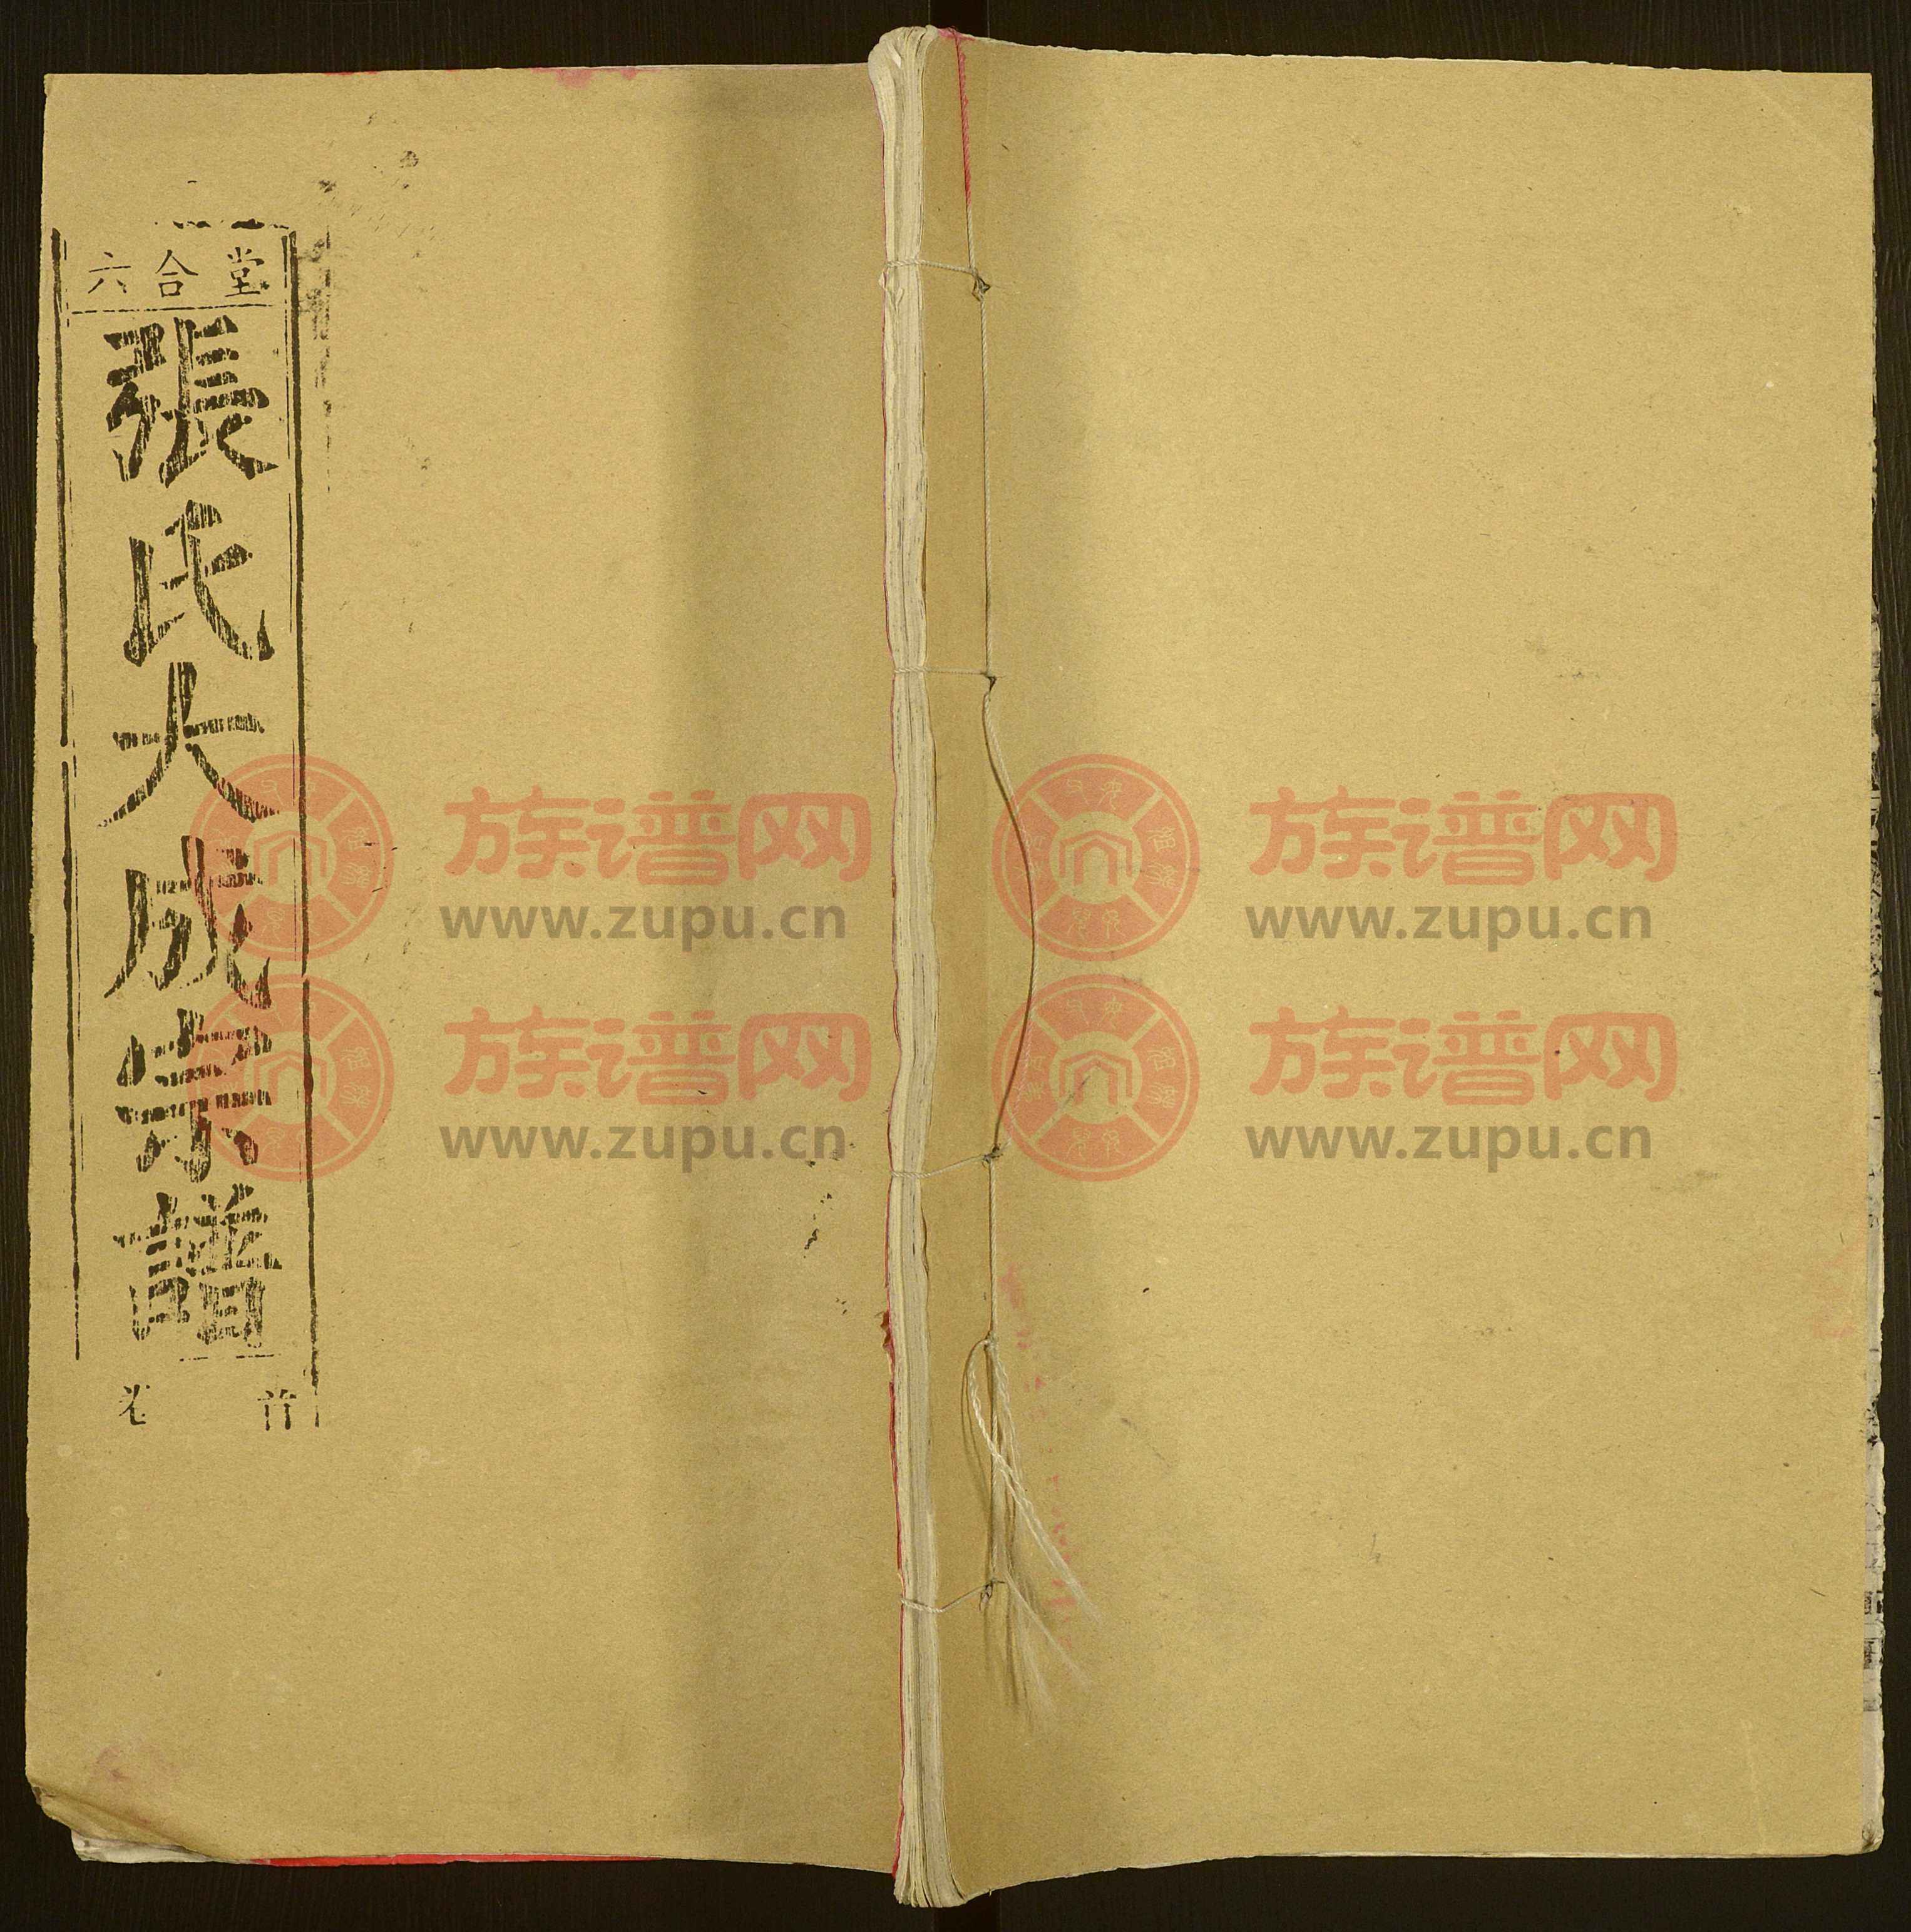 六合堂
張氏大成宗譜
卷首
族谱网
www.zupu.cn
族谱网
www.zupu.cn
族谱网
www.zupu.cn
族谱网
www.zupu.cn